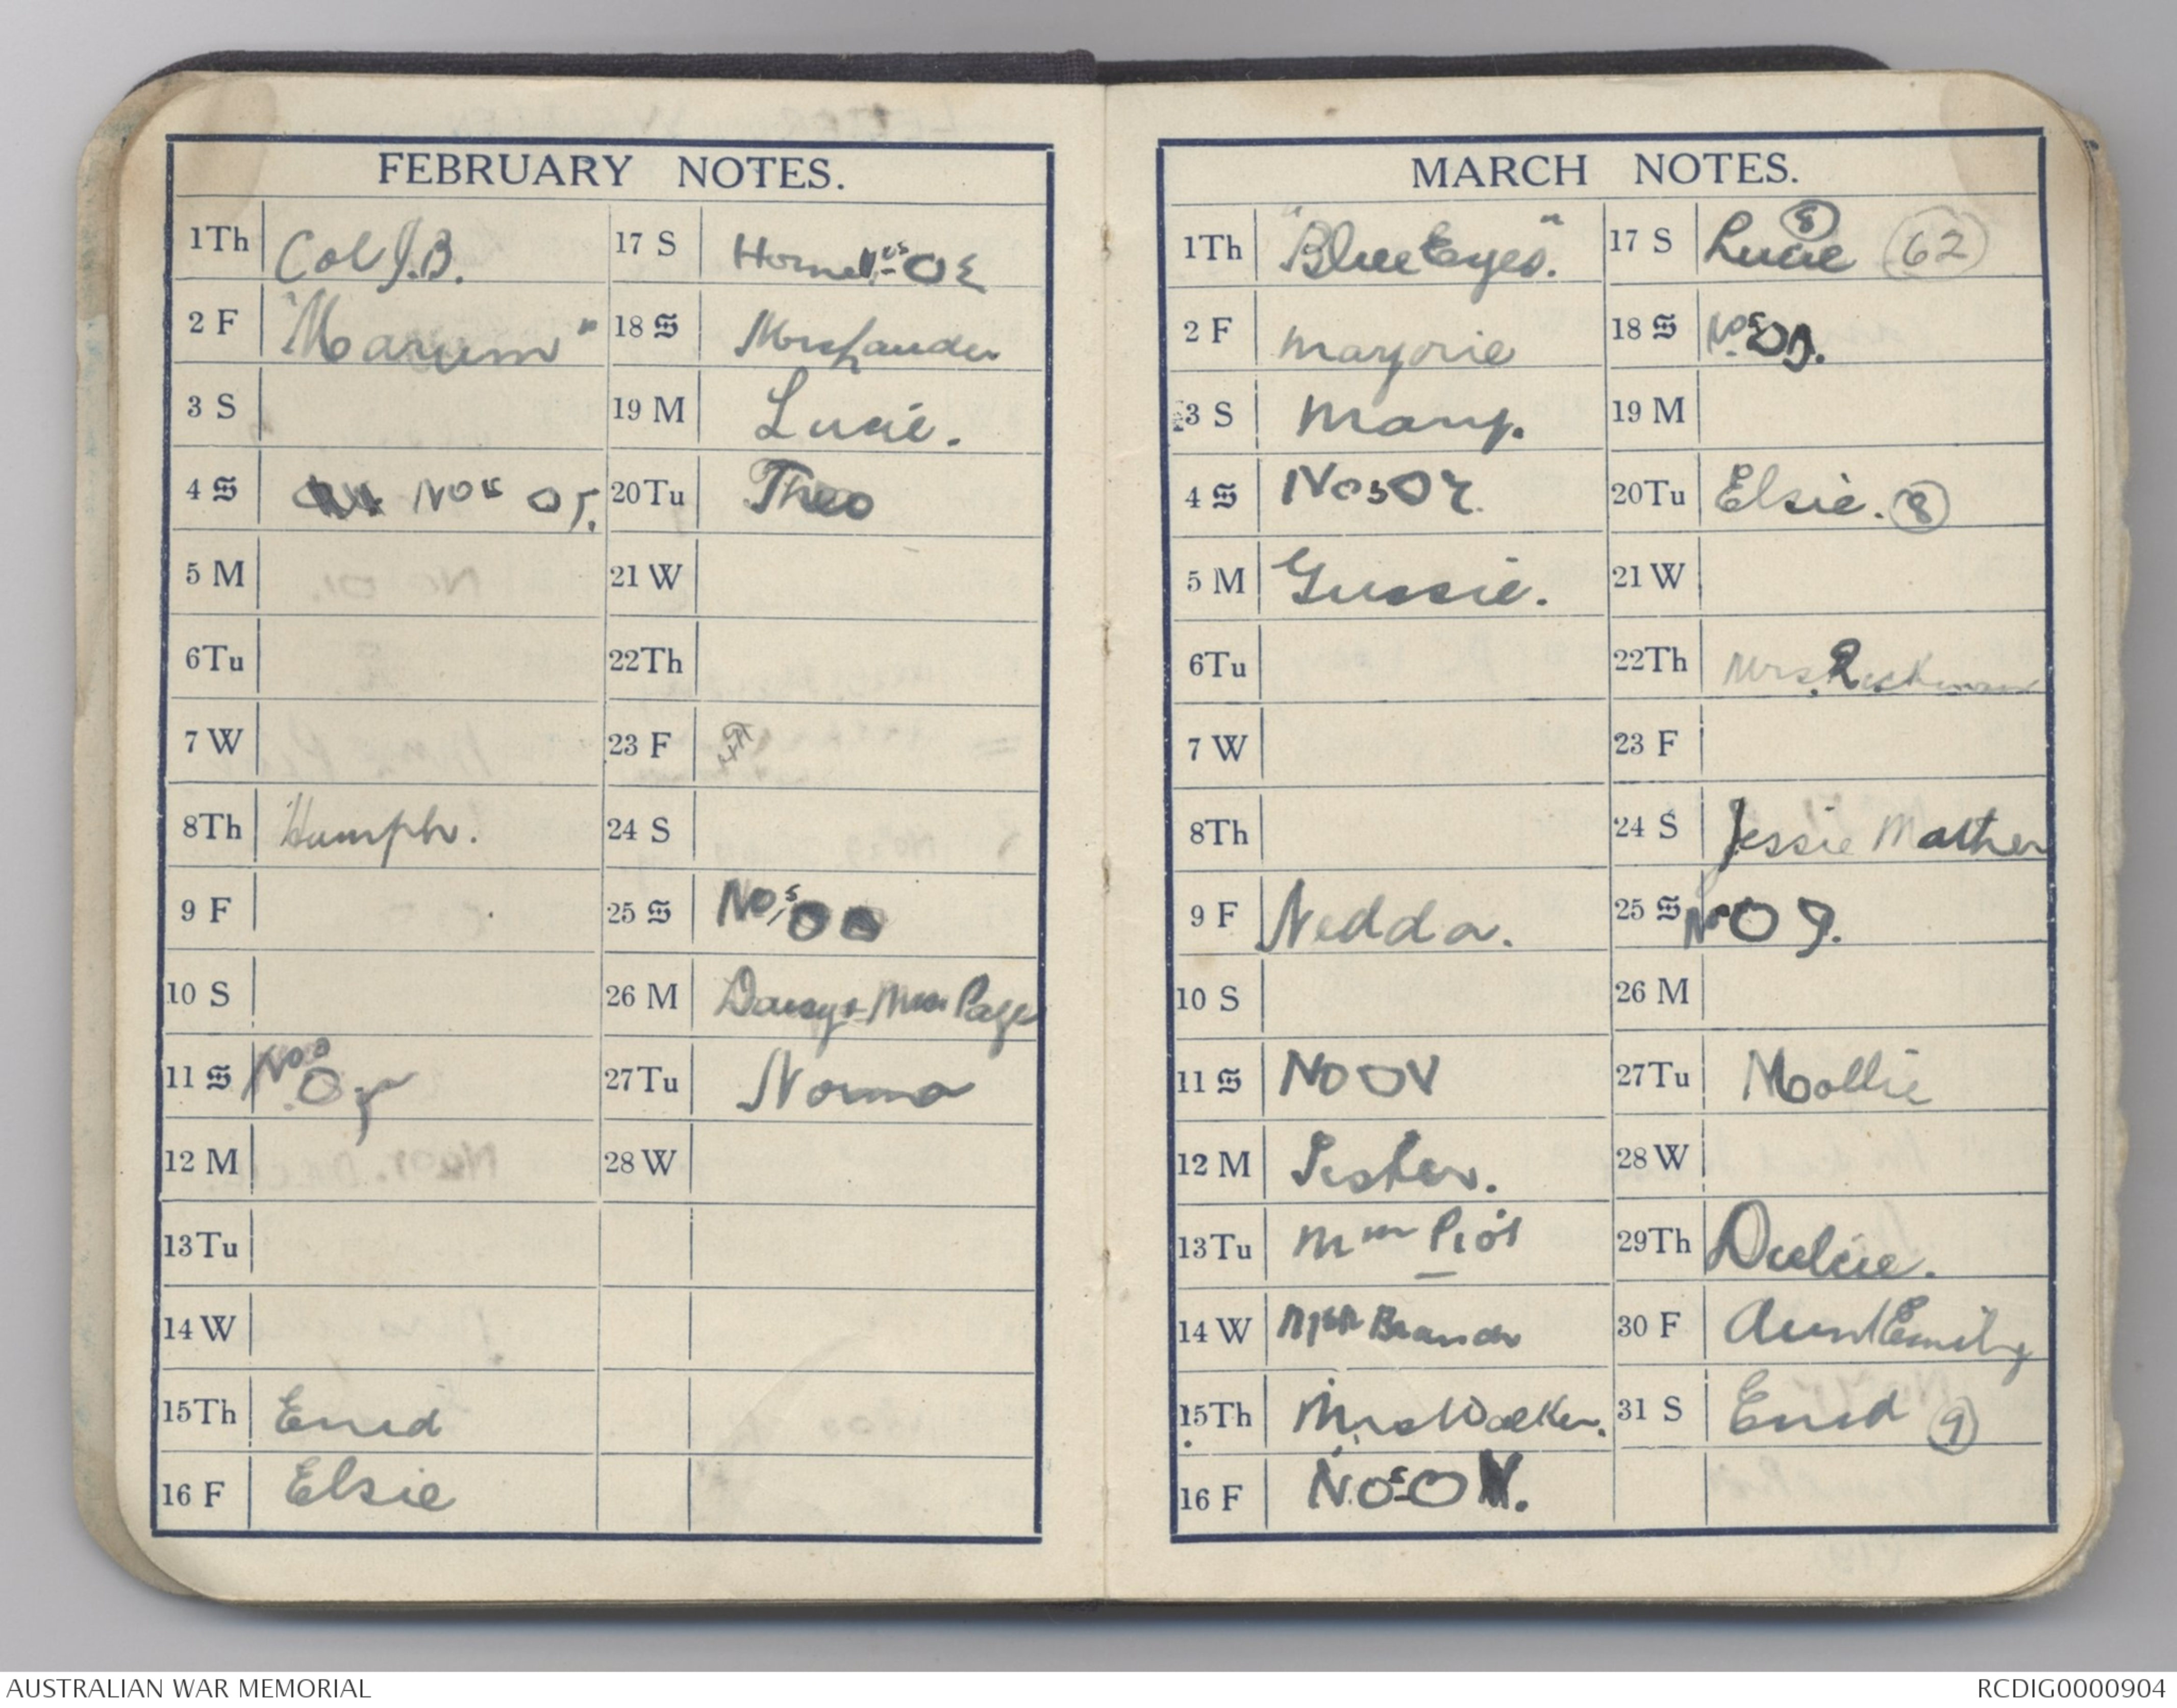 FEBRUARY NOTES.
1Th Col J.B.
2 F "Marum"
3 S
4 S Nos
5 M
6Tu
7 W
8Th Humph.
9 F
10 S
11 S
12 M
13Tu
14 W
15Th Enid
16 F Elsie
17 S
18 S
19 M Lucie.
20Tu Theo
21 W
22Th
23 F
24 S
25 S Nos
26 M Page
27Tu Norma
28 W
MARCH NOTES.
1Th "Blue Eyes."
2 F Marjorie
3 S Mary.
4 S Nos
5 M Gussie.
6Tu
7 W
8Th
9 F Nedda.
10 S
11 S No
12 M
13Tu
14 W
15Th Mrs Walker.
16 F Nos
17 S Lucie 8 62
18 S Nos
19 M
20Tu Elsie. 8
21 W
22Th Mrs
23 F
24 S Jessie Mather
25 S
26 M
27Tu Mollie
28 W
29Th Dulcie.
30 F Aunt Emily
31 S Enid 9
AUSTRALIAN WAR MEMORIAL
RCDIG0000904